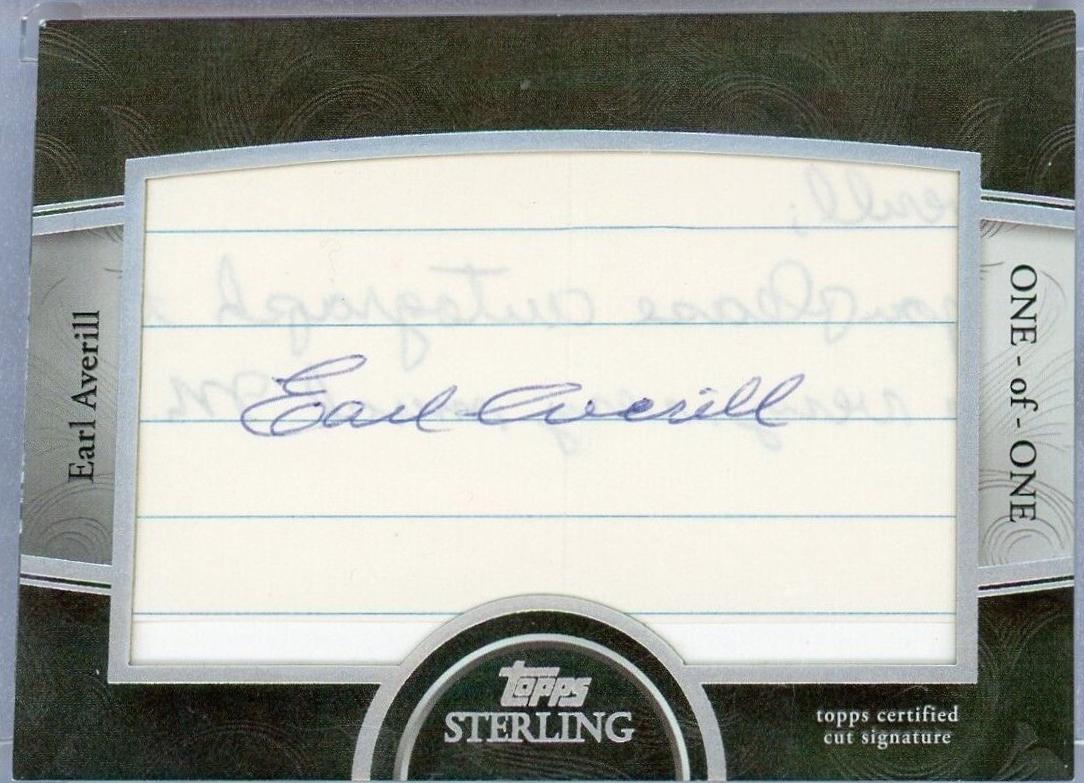 Earl Averill
Earl Averill
ONE - of - ONE
topps
STERLING
topps certified
cut signature